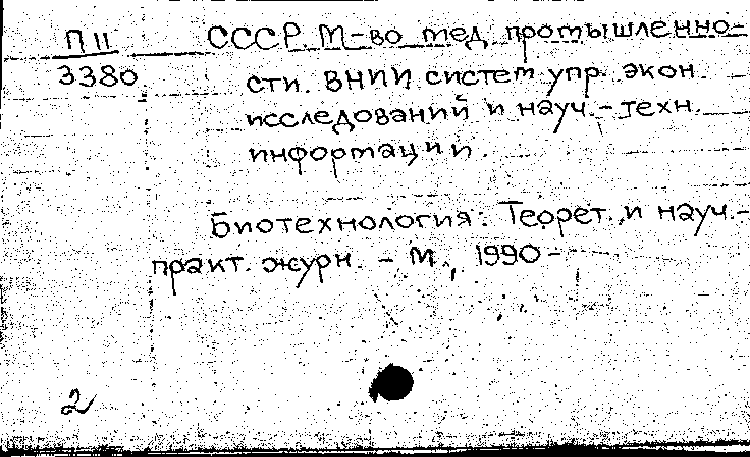 П 11
3380
СССР. М-во мед. промышленно-
сти. ВНИИ систем упр. экон.
исследований и науч.-техн.
информации.
Биотехнология: Теорет. и науч.-
практ. журн. - М., 1990-
2